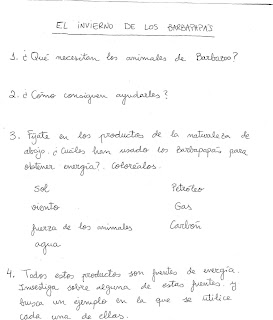 EL INVIERNO DE LOS BARBAPAPAS
1. ¿Qué necesitan los animales de Barbazoo?
2. ¿Cómo consiguen ayudarles?
3. Fíjate en los productos de la naturaleza de
abajo. ¿Cuáles han usado los Barbapapas para
obtener energía? Coloréalos.
Sol Petróleo
viento Gas
fuerza de los animales Carbón
agua
4. Todos estos productos son fuentes de energía.
Investiga sobre alguna de estas fuentes y
busca un ejemplo en la que se utilice
cada una de ellas.